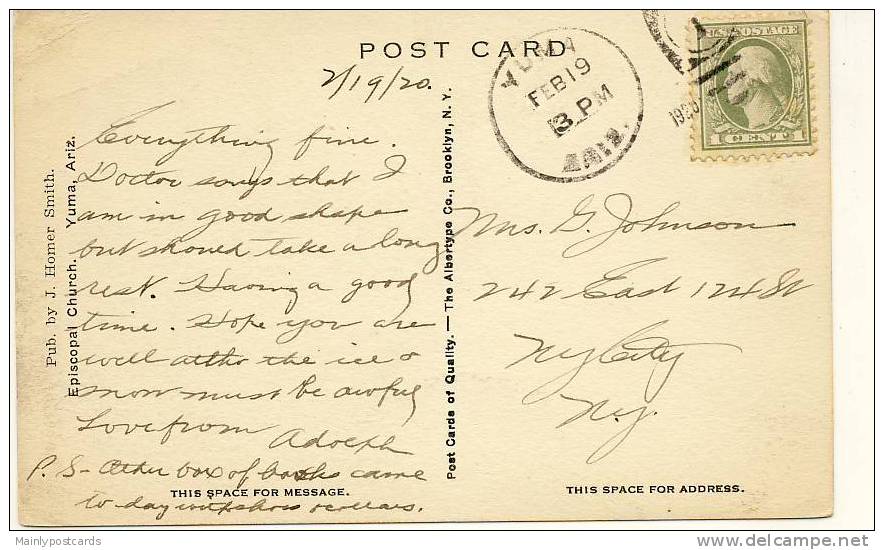 POST CARD
2/19/20.
YUMA
FEB 19
3 PM
ARIZ.
1920
U.S. POSTAGE
1 CENT 1
Everything fine.
Doctor says that I
am in good shape
but should take a long
rest. Having a good
time. Hope you are
well altho the ice &
snow must be awful
Love from Adolph
P.S- Other box of books came
to day
THIS SPACE FOR MESSAGE.
Pub. by J. Homer Smith.
Episcopal Church. Yuma, Ariz.
Post Cards of Quality.—The Albertype Co., Brooklyn, N. Y.
Mrs. G. Johnson
242 East 124 St
N.Y. City
N.Y.
THIS SPACE FOR ADDRESS.
Mainlypostcards
delcampe.net